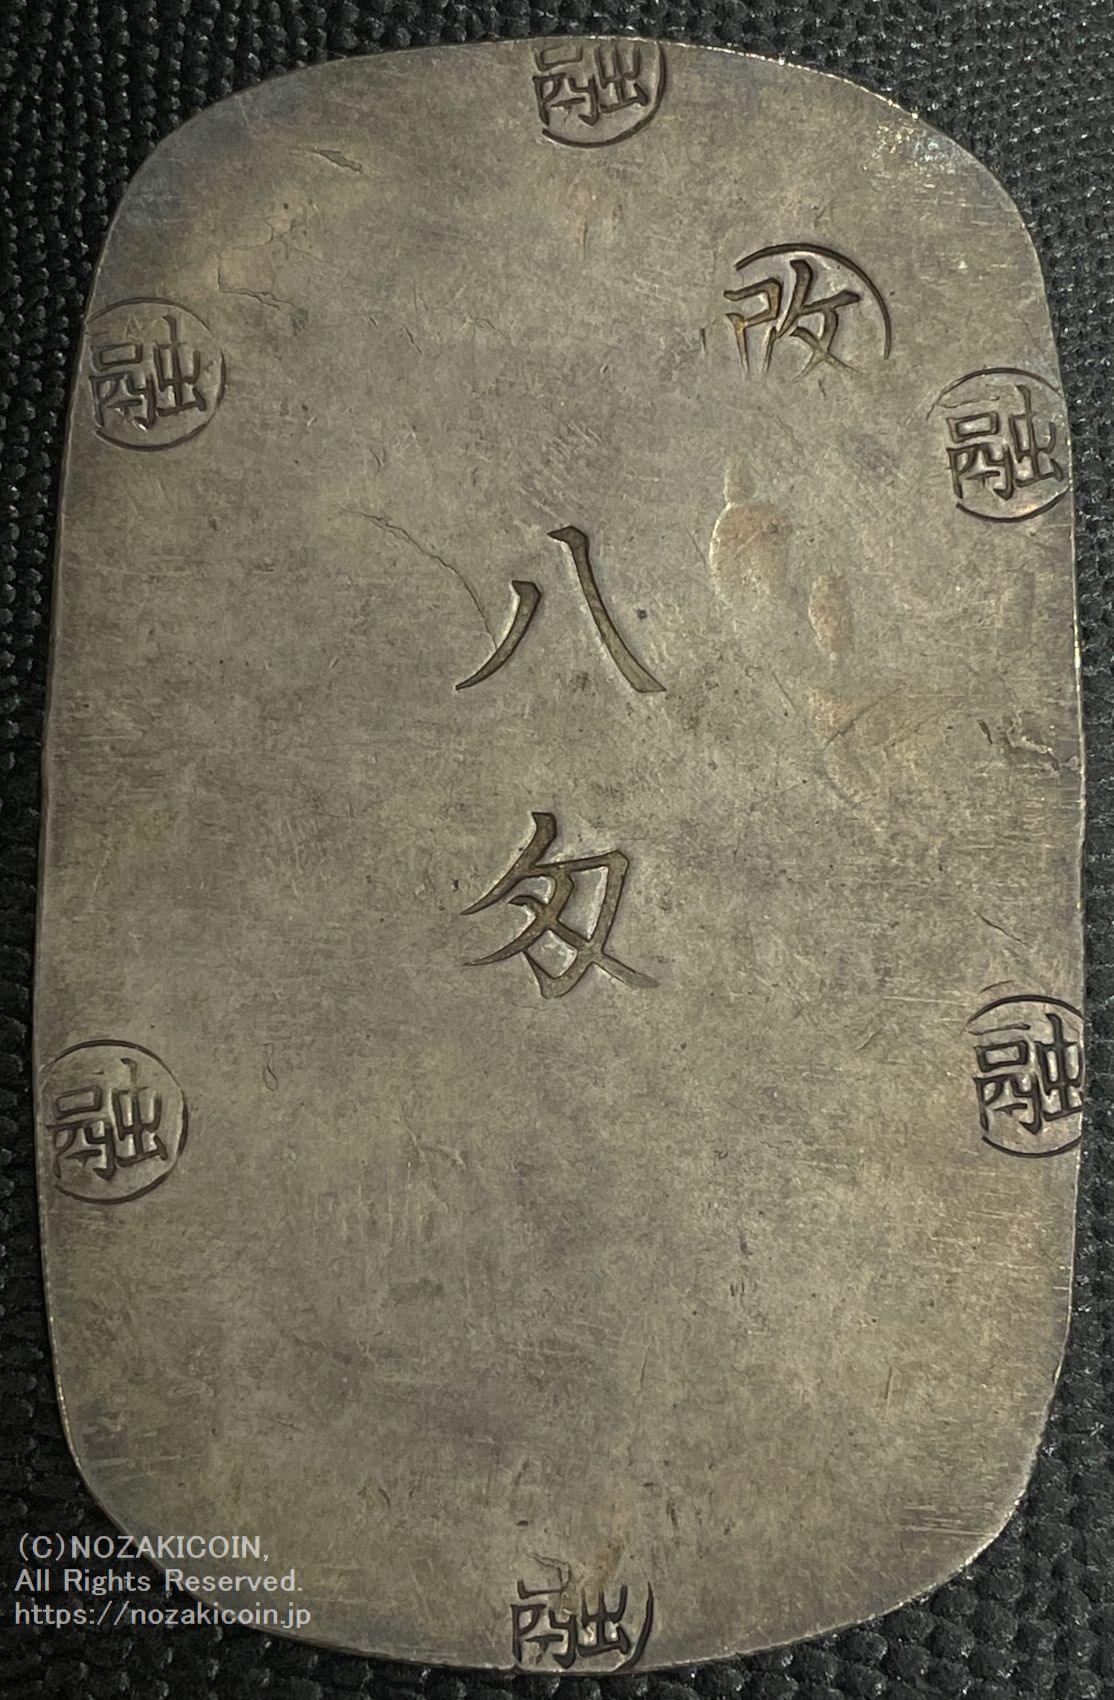 融
改
融
融
八
匁
融
融
融
(C)NOZAKICOIN,
All Rights Reserved.
https://nozakicoin.jp